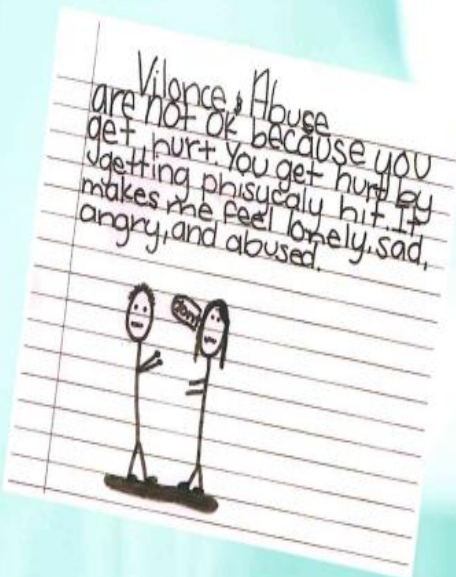 Vilonce & Abuse
are not ok because you
get hurt. You get hurt by
getting phisycaly hit. It
makes me feel lonely, sad,
angry, and abused.